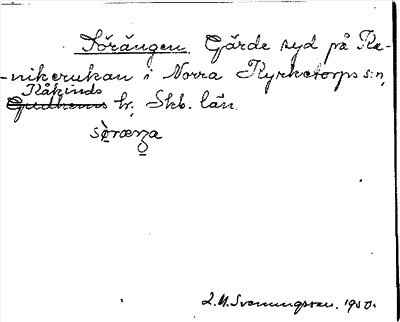 Sörängen. Gärde syd på Ka-
-nikerukan i Norra Kyrketorps s:n,
Kåkinds
Gudhems hr, Skb. län.
2. N. Svenningsson. 1950.